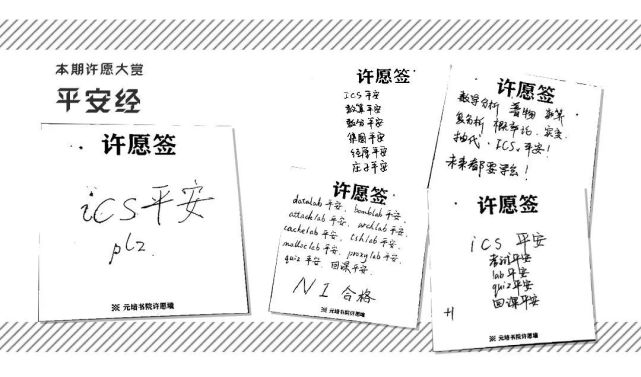 本期许愿大赏
平安经
许愿签
ics平安
plz
元培书院许愿墙
许愿签
ICS 平安
数算平安
数分平安
集图平安
经原平安
庄子平安
许愿签
datalab 平安、bomblab 平安、
attacklab 平安、archlab 平安、
cachelab 平安、tshlab 平安、
malloclab 平安、proxylab 平安、
quiz 平安、回课平安、
N1 合格
元培书院许愿墙
许愿签
数学分析 普物 数算
复分析 概率论、实变、
抽代、ICS、平安!
未来都要寻幺!
许愿签
ics 平安
考试平安
lab平安
quiz平安
回课平安
+1
元培书院许愿墙